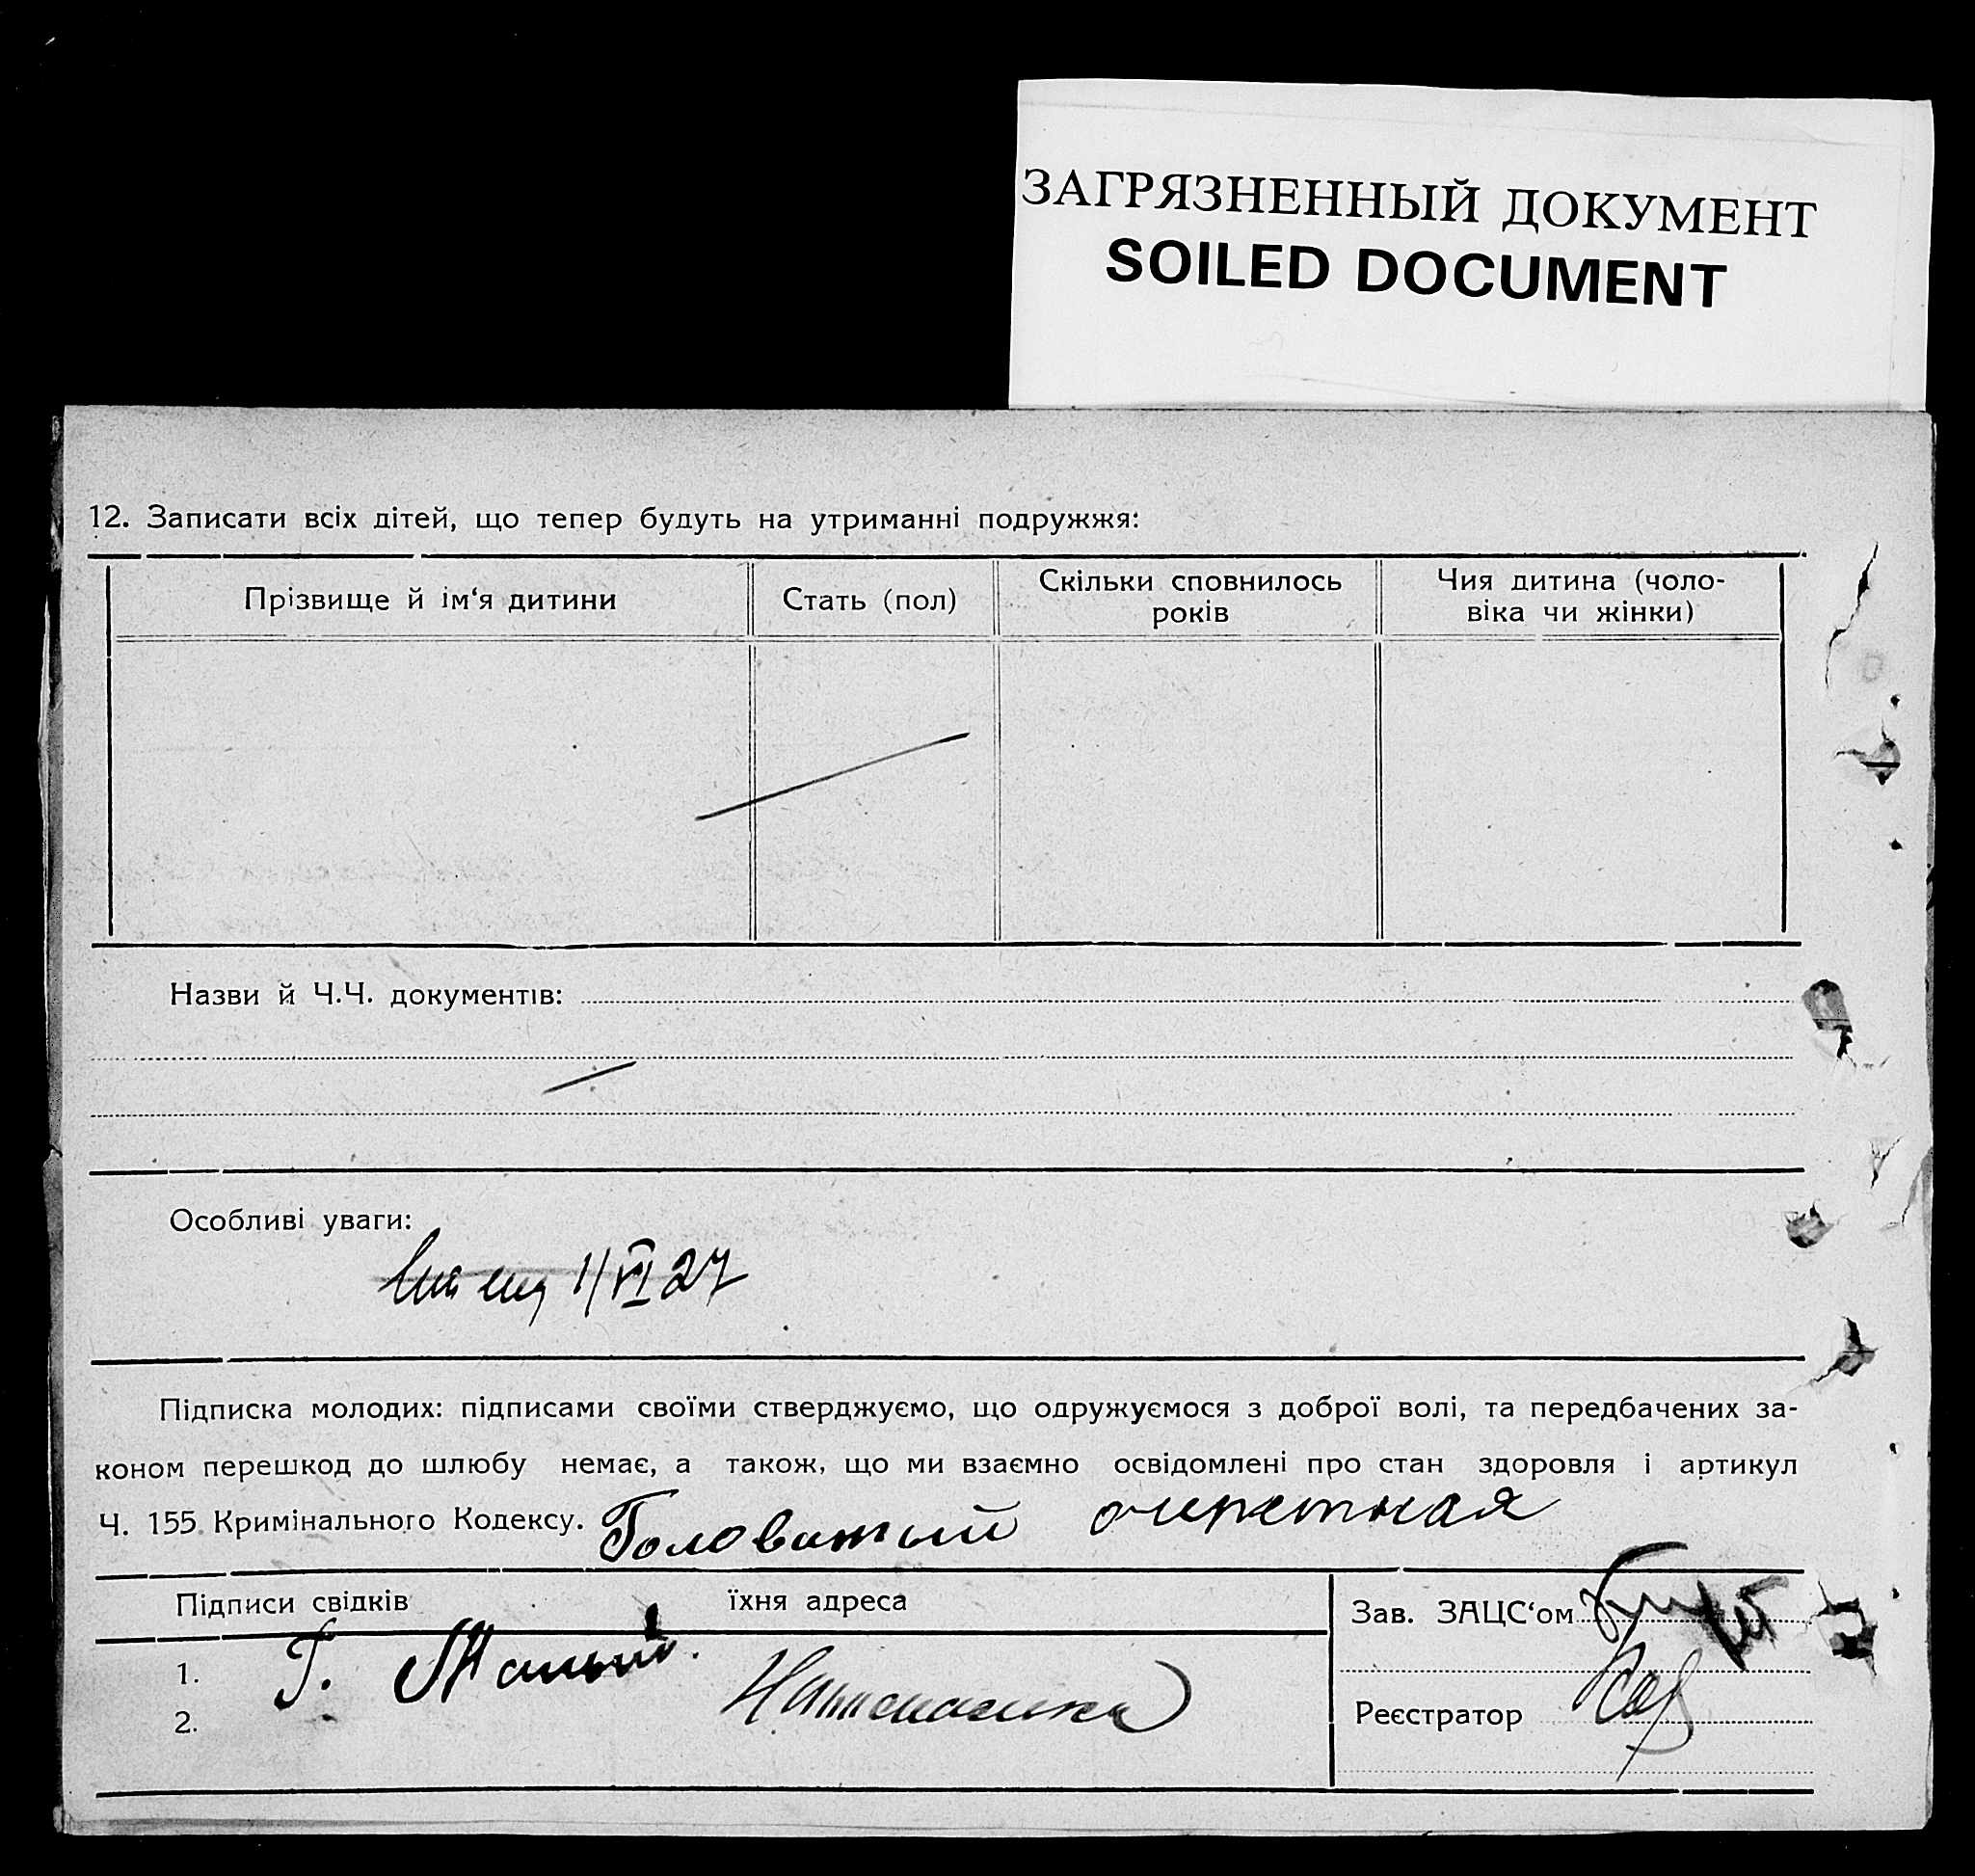 ЗАГРЯЗНЕННЫЙ ДОКУМЕНТ
SOILED DOCUMENT
12. Записати всіх дітей, що тепер будуть на утриманні подружжя:
Прізвище й ім‘я дитини
Стать (пол)
Скільки сповнилось
років
Чия дитина (чоло-
віка чи жінки)
Назви й Ч.Ч. документів:
Особливі уваги:
1/VI 27
Підписка молодих: підписами своїми стверджуємо, що одружуємося з доброї волі, та передбачених за-
коном перешкод до шлюбу немає, а також, що ми взаємно освідомлені про стан здоровля і артикул
Ч. 155 Кримінального Кодексу. Головатый
Підписи свідків їхня адреса
1. Г.
2.
Зав. ЗАЦС‘ом
Реєстратор